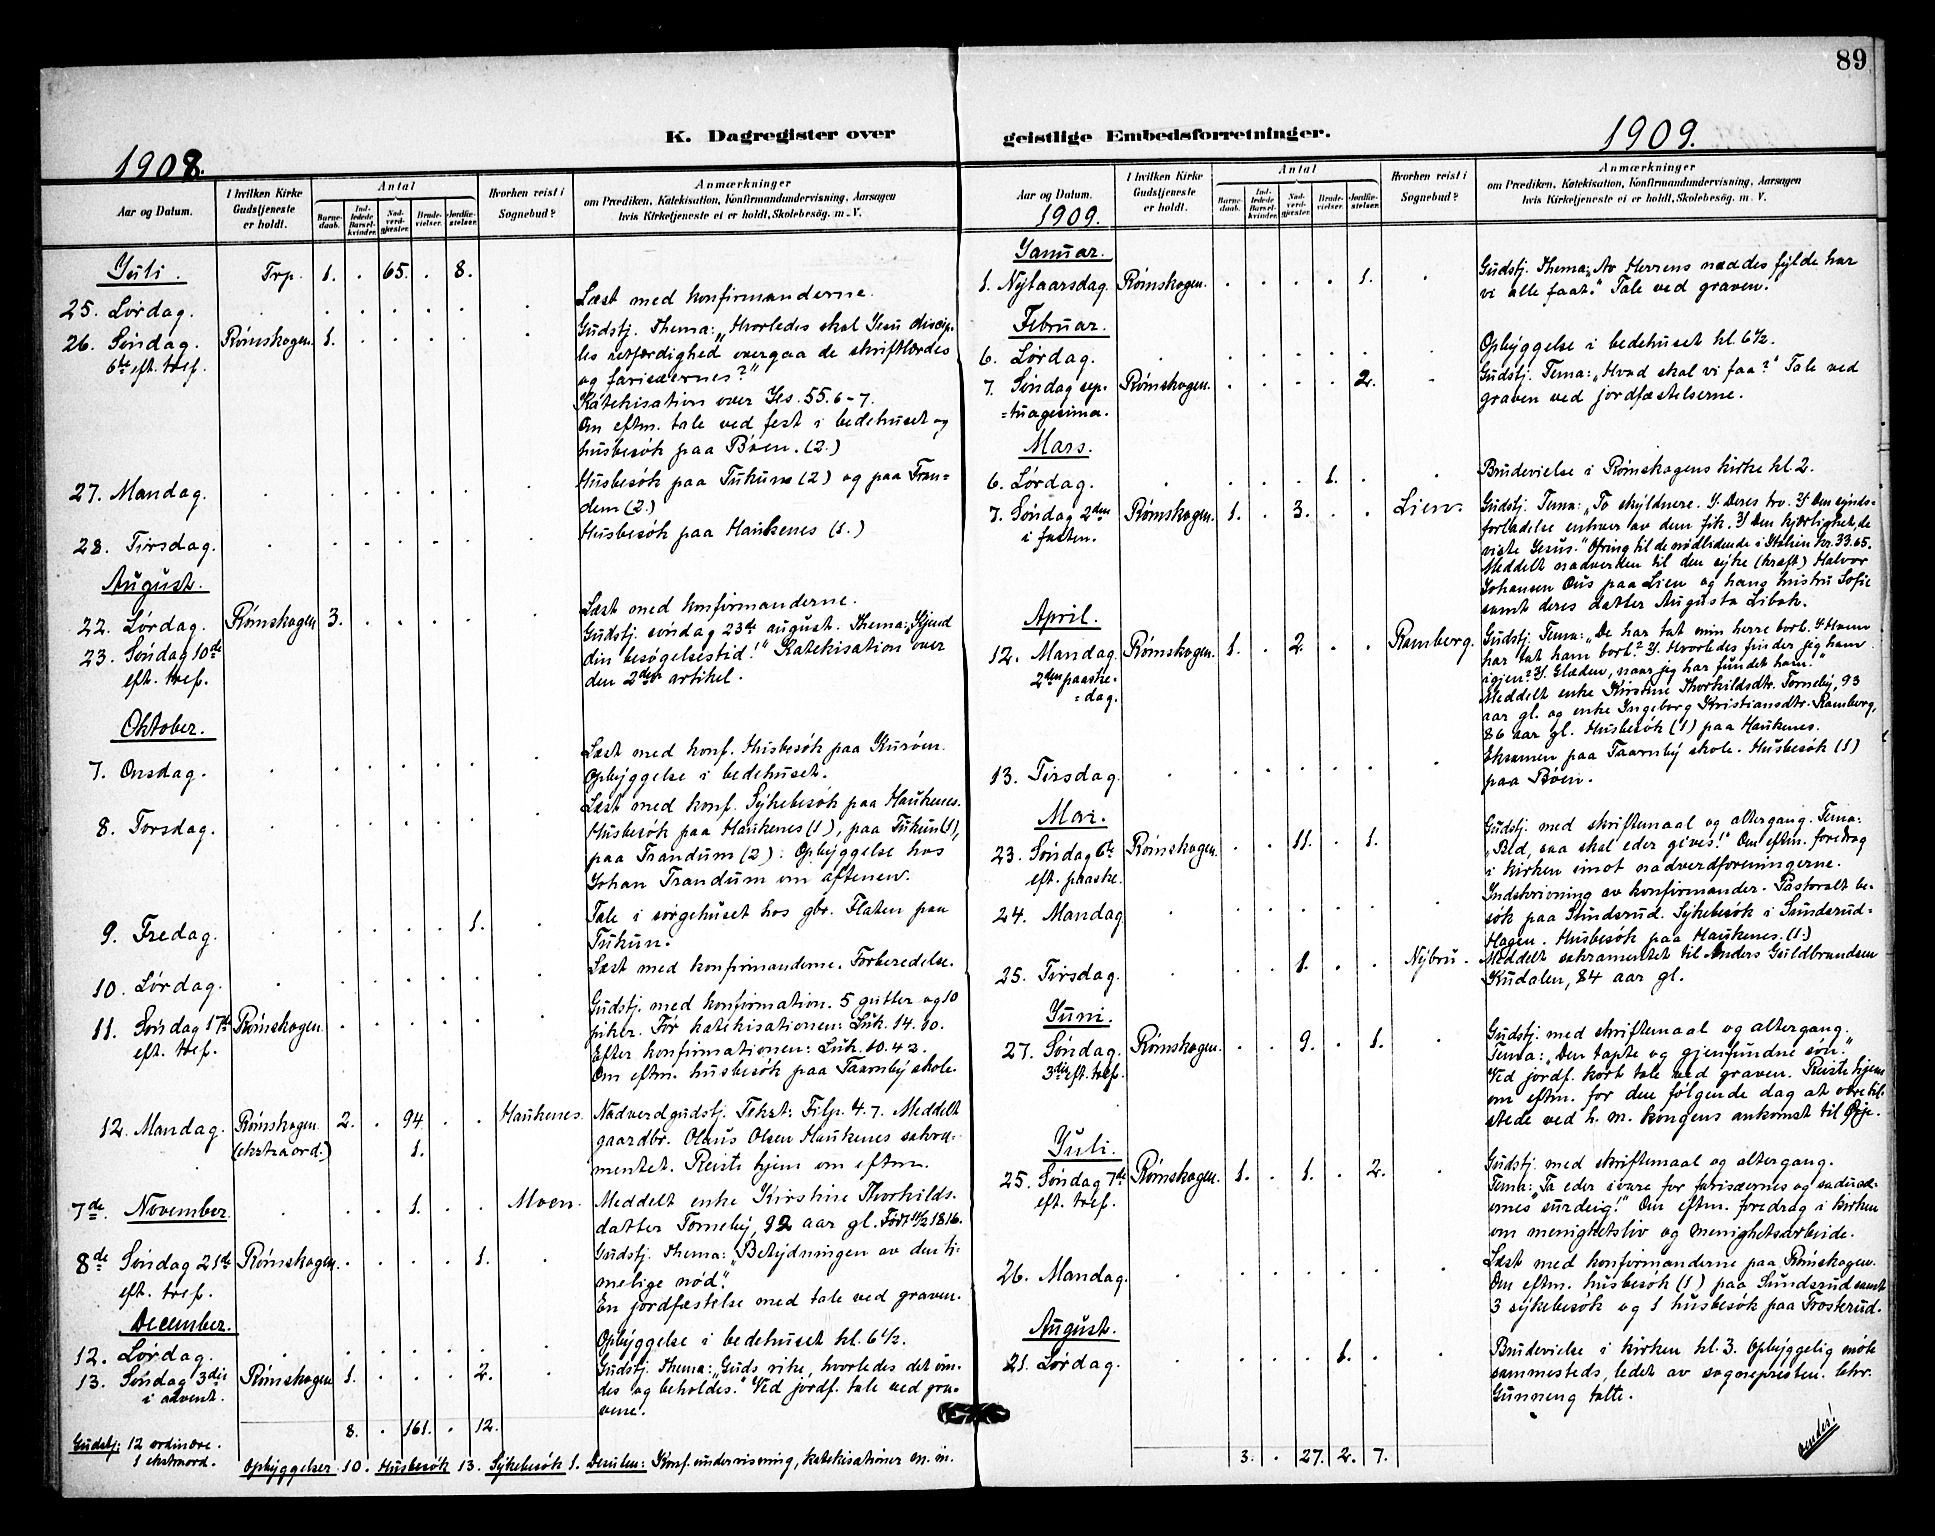 89
K. Dagregister over geistlige Embedsforretninger.
1908.
1909.
Aar og Datum.
I hvilken Kirke Gudstjeneste er holdt.
Antal
Barne-daab.
Ind-ledede Barsel-kvinder.
Nad-verd-gjæster.
Brude-vielser.
Jordfæ-stelser.
Hvorhen reist i Sognebud?
Anmærkninger
om Prædiken, Katekisation, Konfirmandundervisning, Aarsagen
hvis Kirketjeneste ei er holdt, Skolebesøg. m. V.
Juli. Trp. 1. . 65. . 8.
25. Lørdag. Læst med konfirmanderne.
26. Søndag. Rømskogen. 1. Gudstj. Thema: „Hvorledes skal Jesu discip-
6te eft. tref. les retfærdighed overgaa de skriftlærdes
og farisæernes?"
Katekisation over Jes. 55. 6-7.
Om eftm. tale ved fest i bedehuset og
husbesøk paa Bøen. (2.)
27. Mandag. Husbesøk paa Tukun (2) og paa Tran-
dem (2.)
28. Tirsdag. Husbesøk paa Haukenes (1.)
August.
22. Lørdag. Rømskogen 3. Læst med konfirmanderne.
23. Søndag 10de Gudstj. søndag 23de august. Thema: „Kjend
eft. tref. din besøgelsestid!" Katekisation over
den 2den artikel.
Oktober.
7. Onsdag. Læst med konf. Husbesøk paa Kurøen.
Opbyggelse i bedehuset.
8. Torsdag. Læst med konf. Sykebesøk paa Haukenes.
Husbesøk paa Haukenes (1), paa Tukun (1),
paa Trandum (2): Opbyggelse hos
Johan Trandum om aftenen.
9. Fredag. 1. Tale i sørgehuset hos gbr. Flaten paa
Tukun.
10. Lørdag. Læst med konfirmanderne. Forberedelse.
11. Søndag 17de Rømskogen. Gudstj. med konfirmation. 5 gutter og 10
eft. tref. piker. Før katekisationen: Luk. 14.
Efter konfirmationen: Luk. 10. 42.
Om eftm. husbesøk paa Taarnby skole.
12. Mandag. Rømskogen 2. . 94 . . Haukenes. Nadverdgudstj. Tekst: Filip. 4. 7. Meddelt
(ekstraord.) 1. gaardbr. Olaus Olsen Haukenes sakra-
mentet. Reiste hjem om eftm.
7de November. 1. Moen. Meddelt enke Kirstine Thorkilds-
datter Torneby, 92 aar gl. Født 11/2 1816.
8de Søndag 21de Rømskogen. 1. Gudstj. Thema: „Betydningen av den ti-
eft. tref. melige nød".
En jordfæstelse med tale ved graven.
December.
12. Lørdag. Opbyggelse i bedehuset kl. 6 1/2.
13. Søndag 3die Rømskogen 1. 2. Gudstj. Thema: „Guds rike, hvorledes det øin-
i advent. des og beholdes." Ved jordf. tale ved gra-
vene.
8. . 161. . 12.
Gudstj: 12 ordinære.
1 ekstraord. Opbyggelser 10. Husbesøk 13. Sykebesøk 1. Desuten: Konf. undervisning, katekisationer m. m.
Aar og Datum.
1909.
I hvilken Kirke Gudstjeneste er holdt.
Antal
Barne-daab.
Ind-ledede Barsel-kvinder.
Nad-verd-gjæster.
Brude-vielser.
Jordfæ-stelser.
Hvorhen reist i Sognebud?
Anmærkninger
om Prædiken, Katekisation, Konfirmandundervisning, Aarsagen
hvis Kirketjeneste ei er holdt, Skolebesøg. m. V.
Januar.
1. Nytaarsdag. Rømskogen. 1. Gudstj. Thema: „Av Herrens naades fylde har
vi alle faat." Tale ved graven.
Februar.
6. Lørdag. Opbyggelse i bedehuset kl. 6 1/2.
7. Søndag sep- Rømskogen. 2. Gudstj. Tema: „Hvad skal vi faa?" Tale ved
=tuagesima. graven ved jordfæstelserne.
Mars.
6. Lørdag. 1. Brudevielse i Rømskogens kirke kl. 2.
7. Søndag 2den Rømskogen. 1. . 3. . . Lien. Gudstj. Tema: „To skyldnere. 1/ Deres tro. 2/ Den synds-
i fasten. forladelse enhver av dem fik. 3/ Den kjærlighet, de
viste Jesus." Ofring til de nødlidende i Italien kr. 33.65.
Meddelt nadverden til den syke (kræft) Halvor
Johansen Ous paa Lien og hans hustru Sofie
samt deres datter Augusta Libak.
April.
12. Mandag. Rømskogen. 1. . 2. . . Ramberg. Gudstj. Tema: „De har tat min herre bort. 1/ Hvem
2den paaske- har tat ham bort? 2/ Hvorledes finder jeg ham
=dag. igjen? 3/ Glæden, naar jeg har fundet ham."
Meddelt enke Kirstine Thorkildsdtr. Torneby, 93
aar gl. og enke Ingeborg Kristiansdtr. Ramberg,
86 aar gl. Husbesøk (1) paa Haukenes.
13. Tirsdag. Eksamen paa Taarnby skole. Husbesøk (1)
paa Bøen.
Mai.
23. Søndag 6te Rømskogen . . 11. . 1. Gudstj. med skriftemaal og altergang. Tema:
eft. paaske. „Bed, saa skal eder gives!" Om eftm. foredrag
i kirken imot nadverdforeningerne.
24. Mandag Indskrivning av konfirmander. Pastoralt be-
søk paa Sundsrud. Sykebesøk i Sundsrud-
Hagen. Husbesøk paa Haukenes. (1.)
25. Tirsdag. 1. Nybru. Meddelt sakramentet til Anders Guldbrandsen
Kudalen, 84 aar gl.
Juni.
27. Søndag. Rømskogen. . . 9. . 1. Gudstj. med skriftemaal og altergang.
3die eft. tref. Tema: „Den tapte og gjenfundne søn."
Ved jordf. kort tale ved graven. Reiste hjem
om eftm. for den følgende dag at være til-
stede ved h. m. kongens ankomst til Ørje.
Juli.
25. Søndag 7de Rømskogen. 1. . 1. . 2. Gudstj. med skriftemaal og altergang.
eft. tref. Tema: „Ta eder i vare for farisæernes og sadusæ-
ernes surdeig!" Om eftm. foredrag i kirken
om menighetsliv og menighetsarbeide.
26. Mandag. Læst med konfirmanderne paa Rømskogen.
Om eftm. husbesøk (1) paa Sundsrud samt
3 sykebesøk og 1 husbesøk paa Trosterud.
August.
21. Lørdag. 1. Brudevielse i kirken kl. 3. Opbyggelig møte
sammesteds, ledet av sognepresten. lehr.
Gunneng talte.
3. . 27. 2. 7.
vendes!